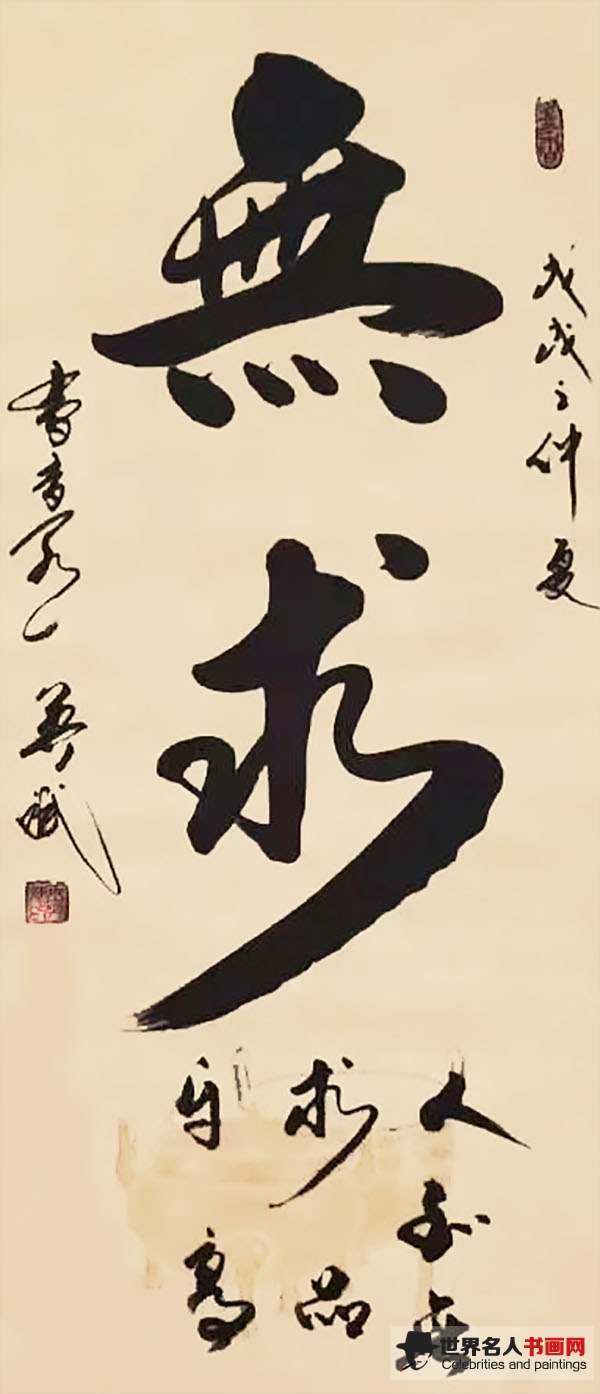 戊戌之仲夏
無求
人到無
求品
自高
書 英斌
世界名人书画网
Celebrities and paintings